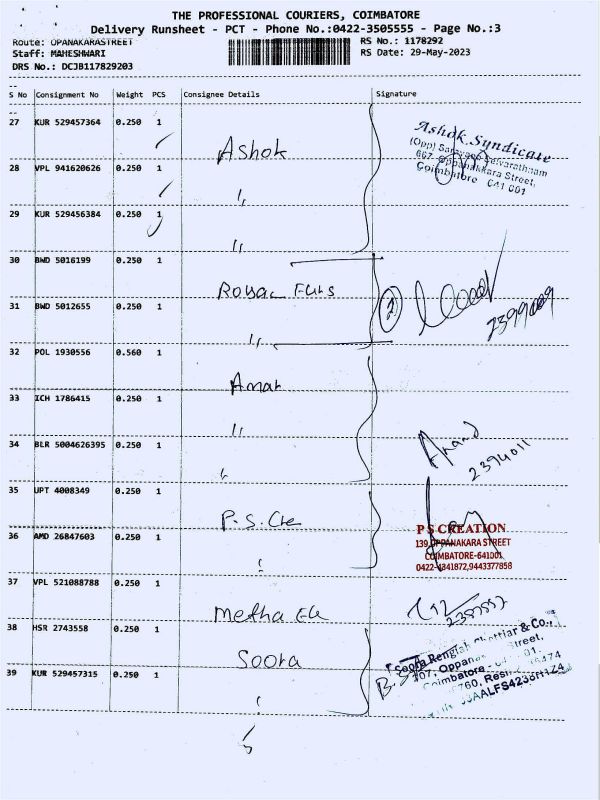 THE PROFESSIONAL COURIERS, COIMBATORE
Delivery Runsheet - PCT - Phone No.:0422-3505555 - Page No.:3
Route: OPANAKARASTREET
RS No.: 1178292
Staff: MAHESHWARI
RS Date: 29-May-2023
DRS No.: DCJB117829203
--
S No Consignment No Weight PCS Consignee Details Signature
--
27 KUR 529457364 0.250 1
Ashok
Ashok Syndicate
(Opp) Saravana Selvarathnam
667, Oppanakkara Street,
Coimbatore 641 001
28 VPL 941620626 0.250 1
"
29 KUR 529456384 0.250 1
"
30 BWD 5016199 0.250 1
Royal
2
31 BWD 5012655 0.250 1
"
32 POL 1930556 0.560 1
33 ICH 1786415 0.250 1
"
34 BLR 5004626395 0.250 1
Anand
2394011
35 UPT 4008349 0.250 1
P.S. Cre
P S CREATION
139, OPPANAKARA STREET
COIMBATORE-641001
0422-4341872,9443377858
36 AMD 26847603 0.250 1
37 VPL 521088788 0.250 1
Metha Ele
38 HSR 2743558 0.250 1
Soora
Soora Rengiah Chettiar & Co.,
107, Oppana Street,
Coimbatore
39 KUR 529457315 0.250 1